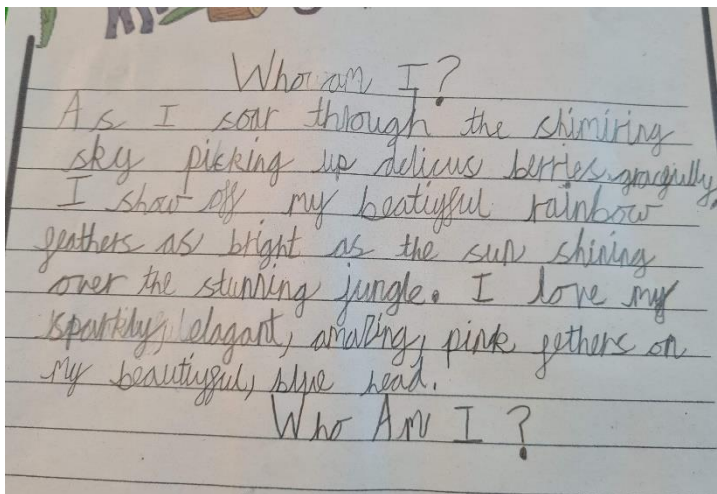 Who am I?
As I soar through the shimiring
sky picking up delicus berries. gracgully,
I show off my beatigful rainbow
feathers as bright as the sun shining
over the stunning jungle. I love my
sparkly, elagant, amaZing, pink fethers on
my beautigful, blue head.
Who Am I?